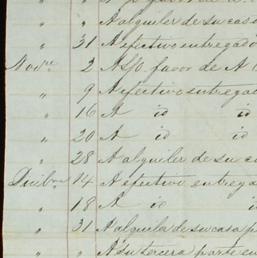 " " A alquiler de su casa
" 31 A efectivo entregado
Novre. 2 A S/O favor de A
" 9 A efectivo entrega
" 16 A id id
" 20 A id id
" 28 A alquiler de su ca
Dicibre 14 A efectivo entrega
" 18 A id id
" 31 A alquiler de su casa p
" " A su tercera parte en